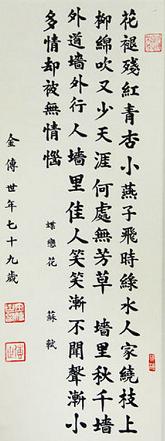 花褪殘紅青杏小燕子飛時綠水人家繞枝上
柳綿吹又少天涯何處無芳草 墻里秋千墻
外道墻外行人墻里佳人笑笑漸不聞聲漸小
多情却被無情惱
蝶戀花 蘇軾
金傳世年七十九歲